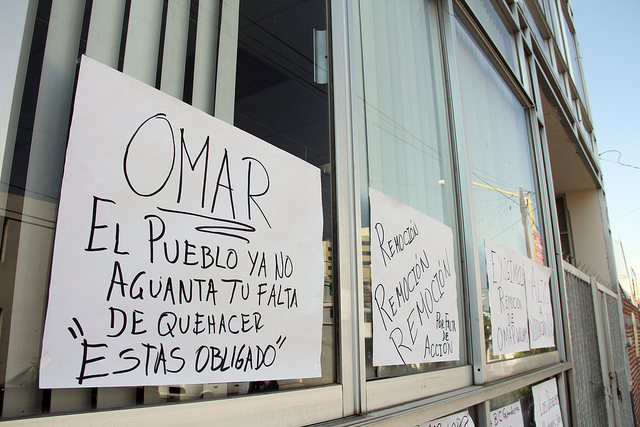 OMAR
EL PUEBLO YA NO
AGUANTA TU FALTA
DE QUEHACER
"ESTAS OBLIGADO"
REMOCIÓN
REMOCIÓN
REMOCIÓN
POR FALTA
DE
ACCIÓN
EXIGIMOS
REMOCION
DE
OMAR
ALTO
A